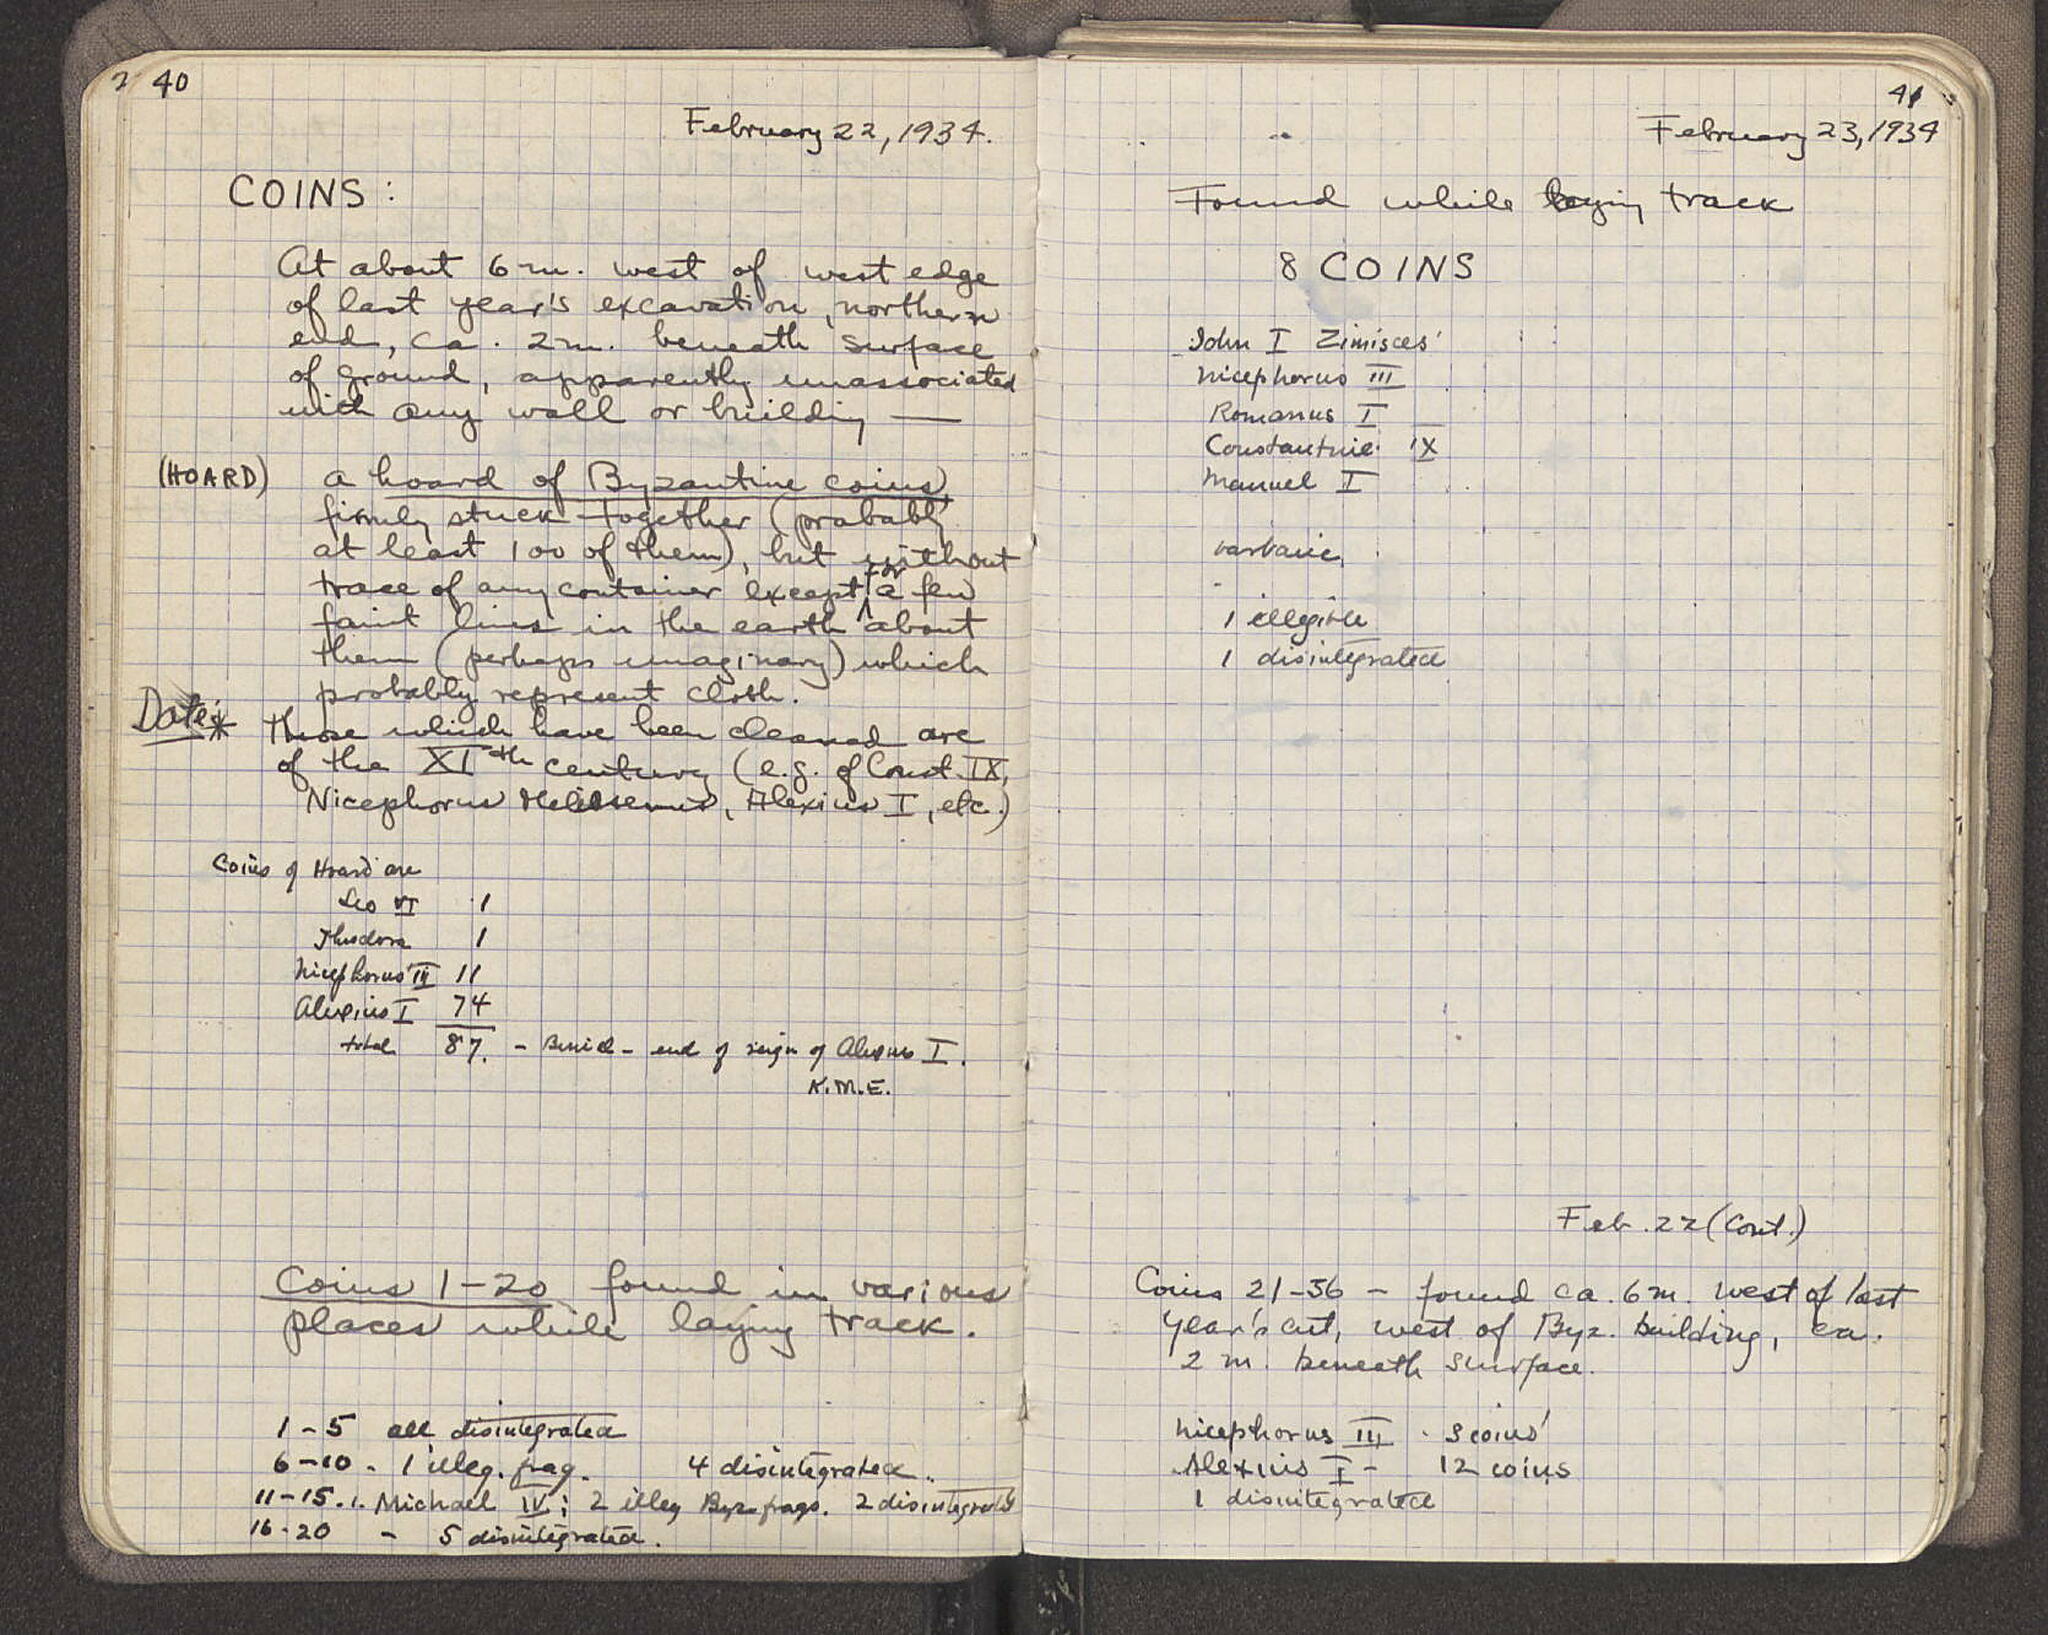 40
February 22, 1934.
COINS:
At about 6 m. west of west edge
of last year's excavation, northern
end, ca. 2 m. beneath surface
of ground, apparently unassociated
with any wall or building —
(HOARD) a hoard of Byzantine coins,
firmly stuck together (probably
at least 100 of them), but without
trace of any container except for a few
faint lines in the earth about
them (perhaps imaginary) which
probably represent cloth.
Date:* Those which have been cleaned are
of the XIth century (e.g. of Const. IX,
Nicephorus Melissenus, Alexius I, etc.)
Coins of Hoard are
Leo VI 1
Theodora 1
Nicephorus III 11
Alexius I 74
total 87. - Buried - end of reign of Alexius I.
K.M.E.
Coins 1-20 found in various
places while laying track.
1-5 all disintegrated
6-10 - 1 illeg. frag. 4 disintegrated.
11-15. 1. Michael IV; 2 illeg Byz. frags. 2 disintegrated
16-20 - 5 disintegrated.
41
February 23, 1934
Found while laying track
8 COINS
John I Zimisces
Nicephorus III
Romanus I
Constantine IX
Manuel I
barbaric
1 illegible
1 disintegrated
Feb. 22 (Cont.)
Coins 21-36 - found ca. 6 m. west of last
year's cut, west of Byz. building, ca.
2 m. beneath surface.
Nicephorus III - 3 coins
Alexius I - 12 coins
1 disintegrated